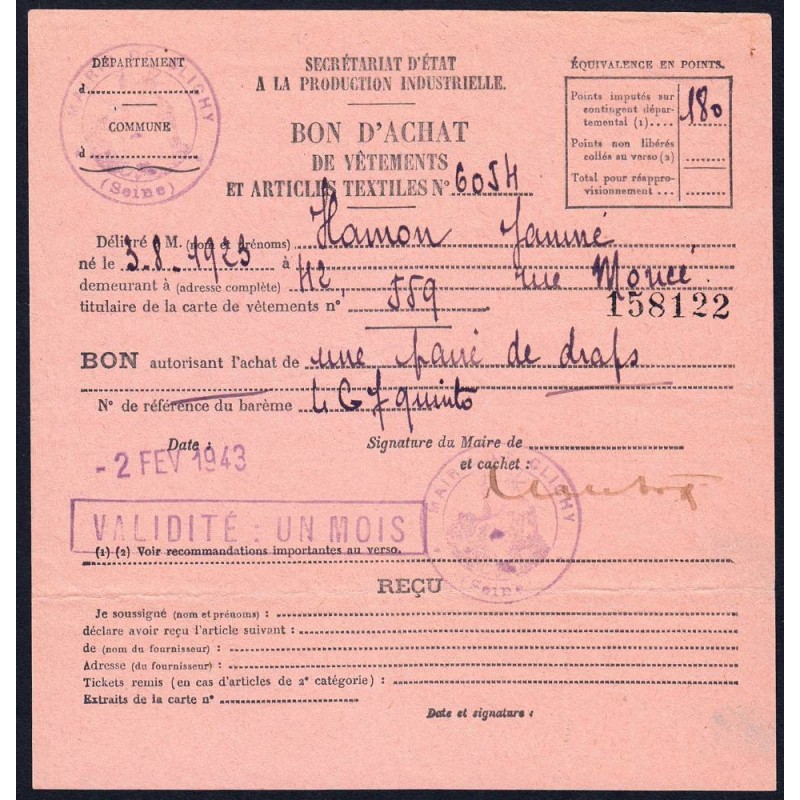 DÉPARTEMENT
d
COMMUNE
à
MAIRIE DE CLICHY
(Seine)
SECRÉTARIAT D'ÉTAT
A LA PRODUCTION INDUSTRIELLE.
BON D'ACHAT
DE VÊTEMENTS
ET ARTICLES TEXTILES N° 6054
ÉQUIVALENCE EN POINTS.
Points imputés sur
contingent dépar-
temental (1).... 180
Points non libérés
collés au verso (2)
Total pour réappro-
visionnement.....
Délivré à M. (nom et prénoms) Hamon
né le 3.8.1923 à
demeurant à (adresse complète) 112, rue
titulaire de la carte de vêtements n° 559
158122
BON autorisant l'achat de une paire de draps
N° de référence du barème
Date :
Signature du Maire de
- 2 FEV 1943
et cachet :
MAIRIE DE CLICHY
(Seine)
VALIDITÉ : UN MOIS
(1) (2) Voir recommandations importantes au verso.
REÇU
Je soussigné (nom et prénoms) :
déclare avoir reçu l'article suivant :
de (nom du fournisseur) :
Adresse (du fournisseur) :
Tickets remis (en cas d'articles de 2e catégorie) :
Extraits de la carte n°
Date et signature :